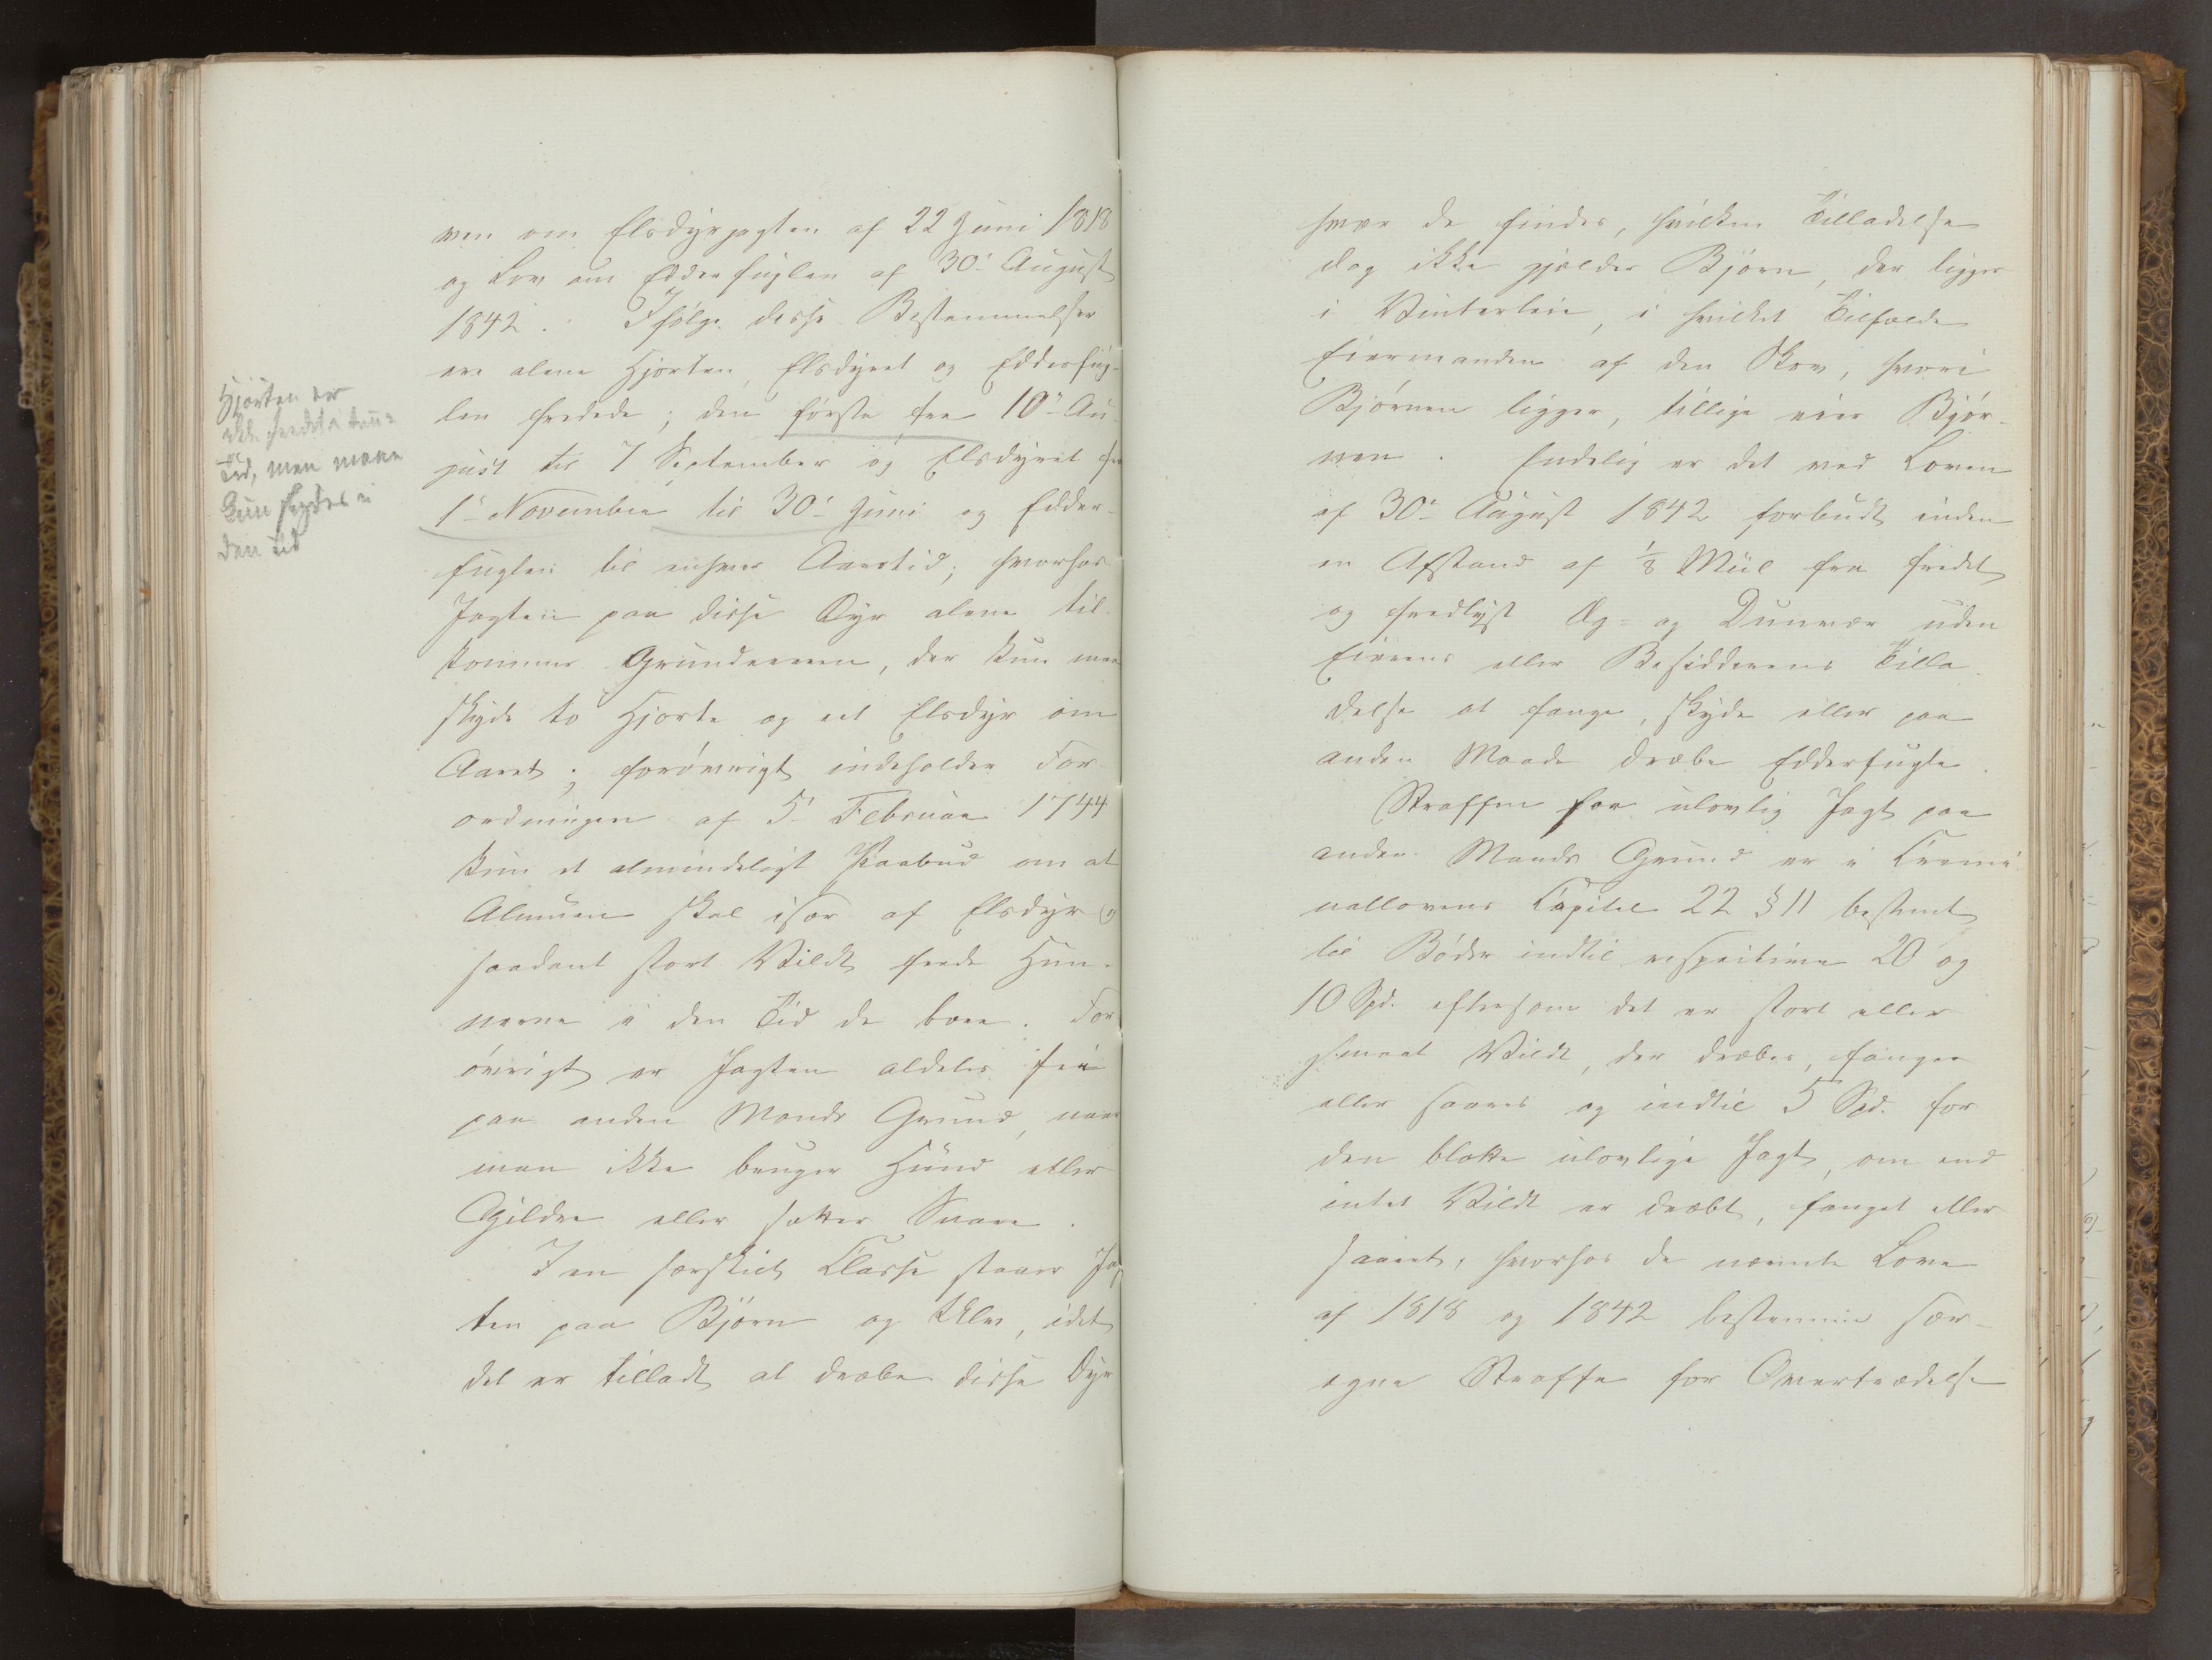 ven om Elsdyrjagten af 22 Juni 1818
og Lov om Edderfuglen af 30te August
1842. Ifølge disse Bestemmelser
ere alene Hjorten, Elsdyret og Edderfug-
len fredede; den første fra 10de Au-
gust til 7 September og Elsdyret fra
1te November til 30te Juni og Edder-
fuglen til enhver Aarstid; hvorhos
Jagten paa disse Dyr alene til-
kommer Grundeieren, der kun maa
skyde to Hjorte og eet Elsdyr om
Aaret; forøvrigt indeholder For-
ordningen af 5te Februar 1744
kun et almindeligt Paabud om at
Almuen skal især af Elsdyr og
saadant stort Vildt frede Hun-
nerne i den Tid de bære. For-
øvrigt er Jagten aldeles fri
paa anden Mands Grund, naar
man ikke bruger Hund eller
Gildre eller sætter Snare.
I en særskilt Classe staaer Jag-
ten paa Bjørn og Ulv, idet
det er tilladt at dræbe disse Dyr
Hjorten er
ikke fredet i denne
Tid, men maa
kun skydes i
den Tid
hvor de findes, hvilken Tilladelse
dog ikke gjælder Bjørn, der ligger
i Vinterleie, i hvilket Tilfælde
Eiermanden af den Skov, hvori
Bjørnen ligger, tillige eier Bjør-
nen. Endelig er det ved Loven
af 30te August 1842 forbudt inden
en Afstand af 1/8 Miil fra fredet
og fredlyst Æg- og Dunvær uden
Eierens eller Besidderens Tilla-
delse at fange, skyde eller paa
anden Maade dræbe Edderfugle.
Straffen for ulovlig Jagt paa
anden Mands Grund er i Crimi-
nallovens Capitel 22 § 11 bestemt
til Bøder indtil respective 20 og
10 Spd. eftersom det er stort eller
smaat Vildt, der dræbes, fanges
eller saares og indtil 5 Spd. for
den blotte ulovlige Jagt, om end
intet Vildt er dræbt, fanget eller
saaret, hvorhos de nævnte Love
af 1818 og 1842 bestemme sær-
egne Straffe for Overtrædelse